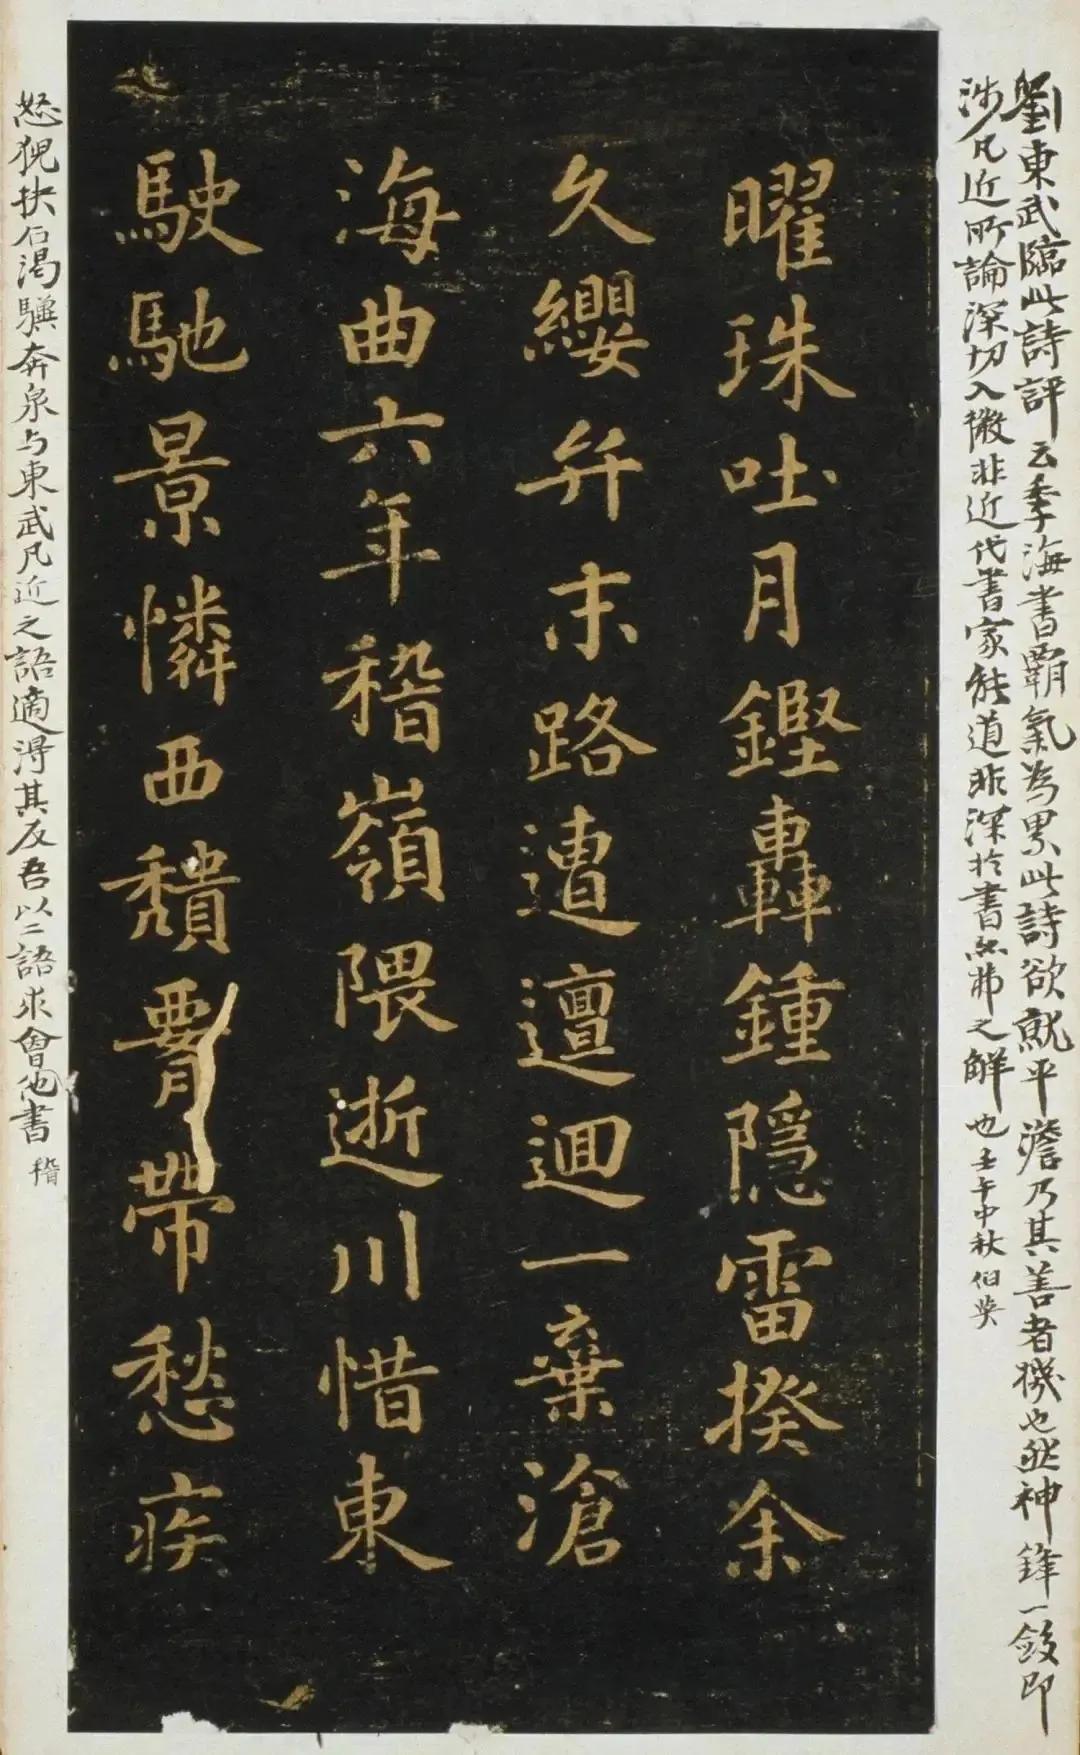 劉東武臨此詩評云季海書霸氣為累此詩欲就平澹乃其善者機也然神鋒一斂即
涉凡近所論深切入微非近代書家能道非深於書然弗之解也壬午中秋伯英
曜珠吐月鏗轟鍾隱雷揆余
久纓弁末路遭邅迴一棄滄
海曲六年稽嶺隈逝川惜東
駛馳景憐西頹腰帶愁疾
怒猊抉石渴驥奔泉与東武凡近之語適得其反吾以二語求會他書
稽